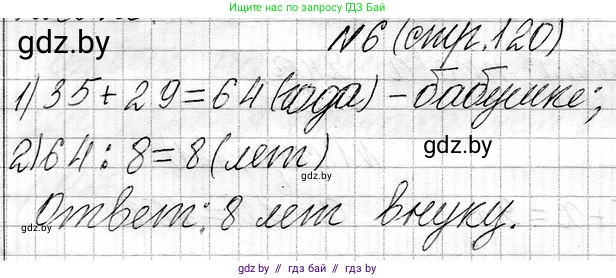 Присоединяйся на реshak.by
gdz.by
№6 (стр. 120)
1) 35 + 29 = 64 (года) - бабушке;
gdz.by
2) 64 : 8 = 8 (лет)
gdz.by
Ответ: 8 лет внуку.
gdz.by
gdz.by // гдз.бай // gdz.by // гдз.бай // gdz.by